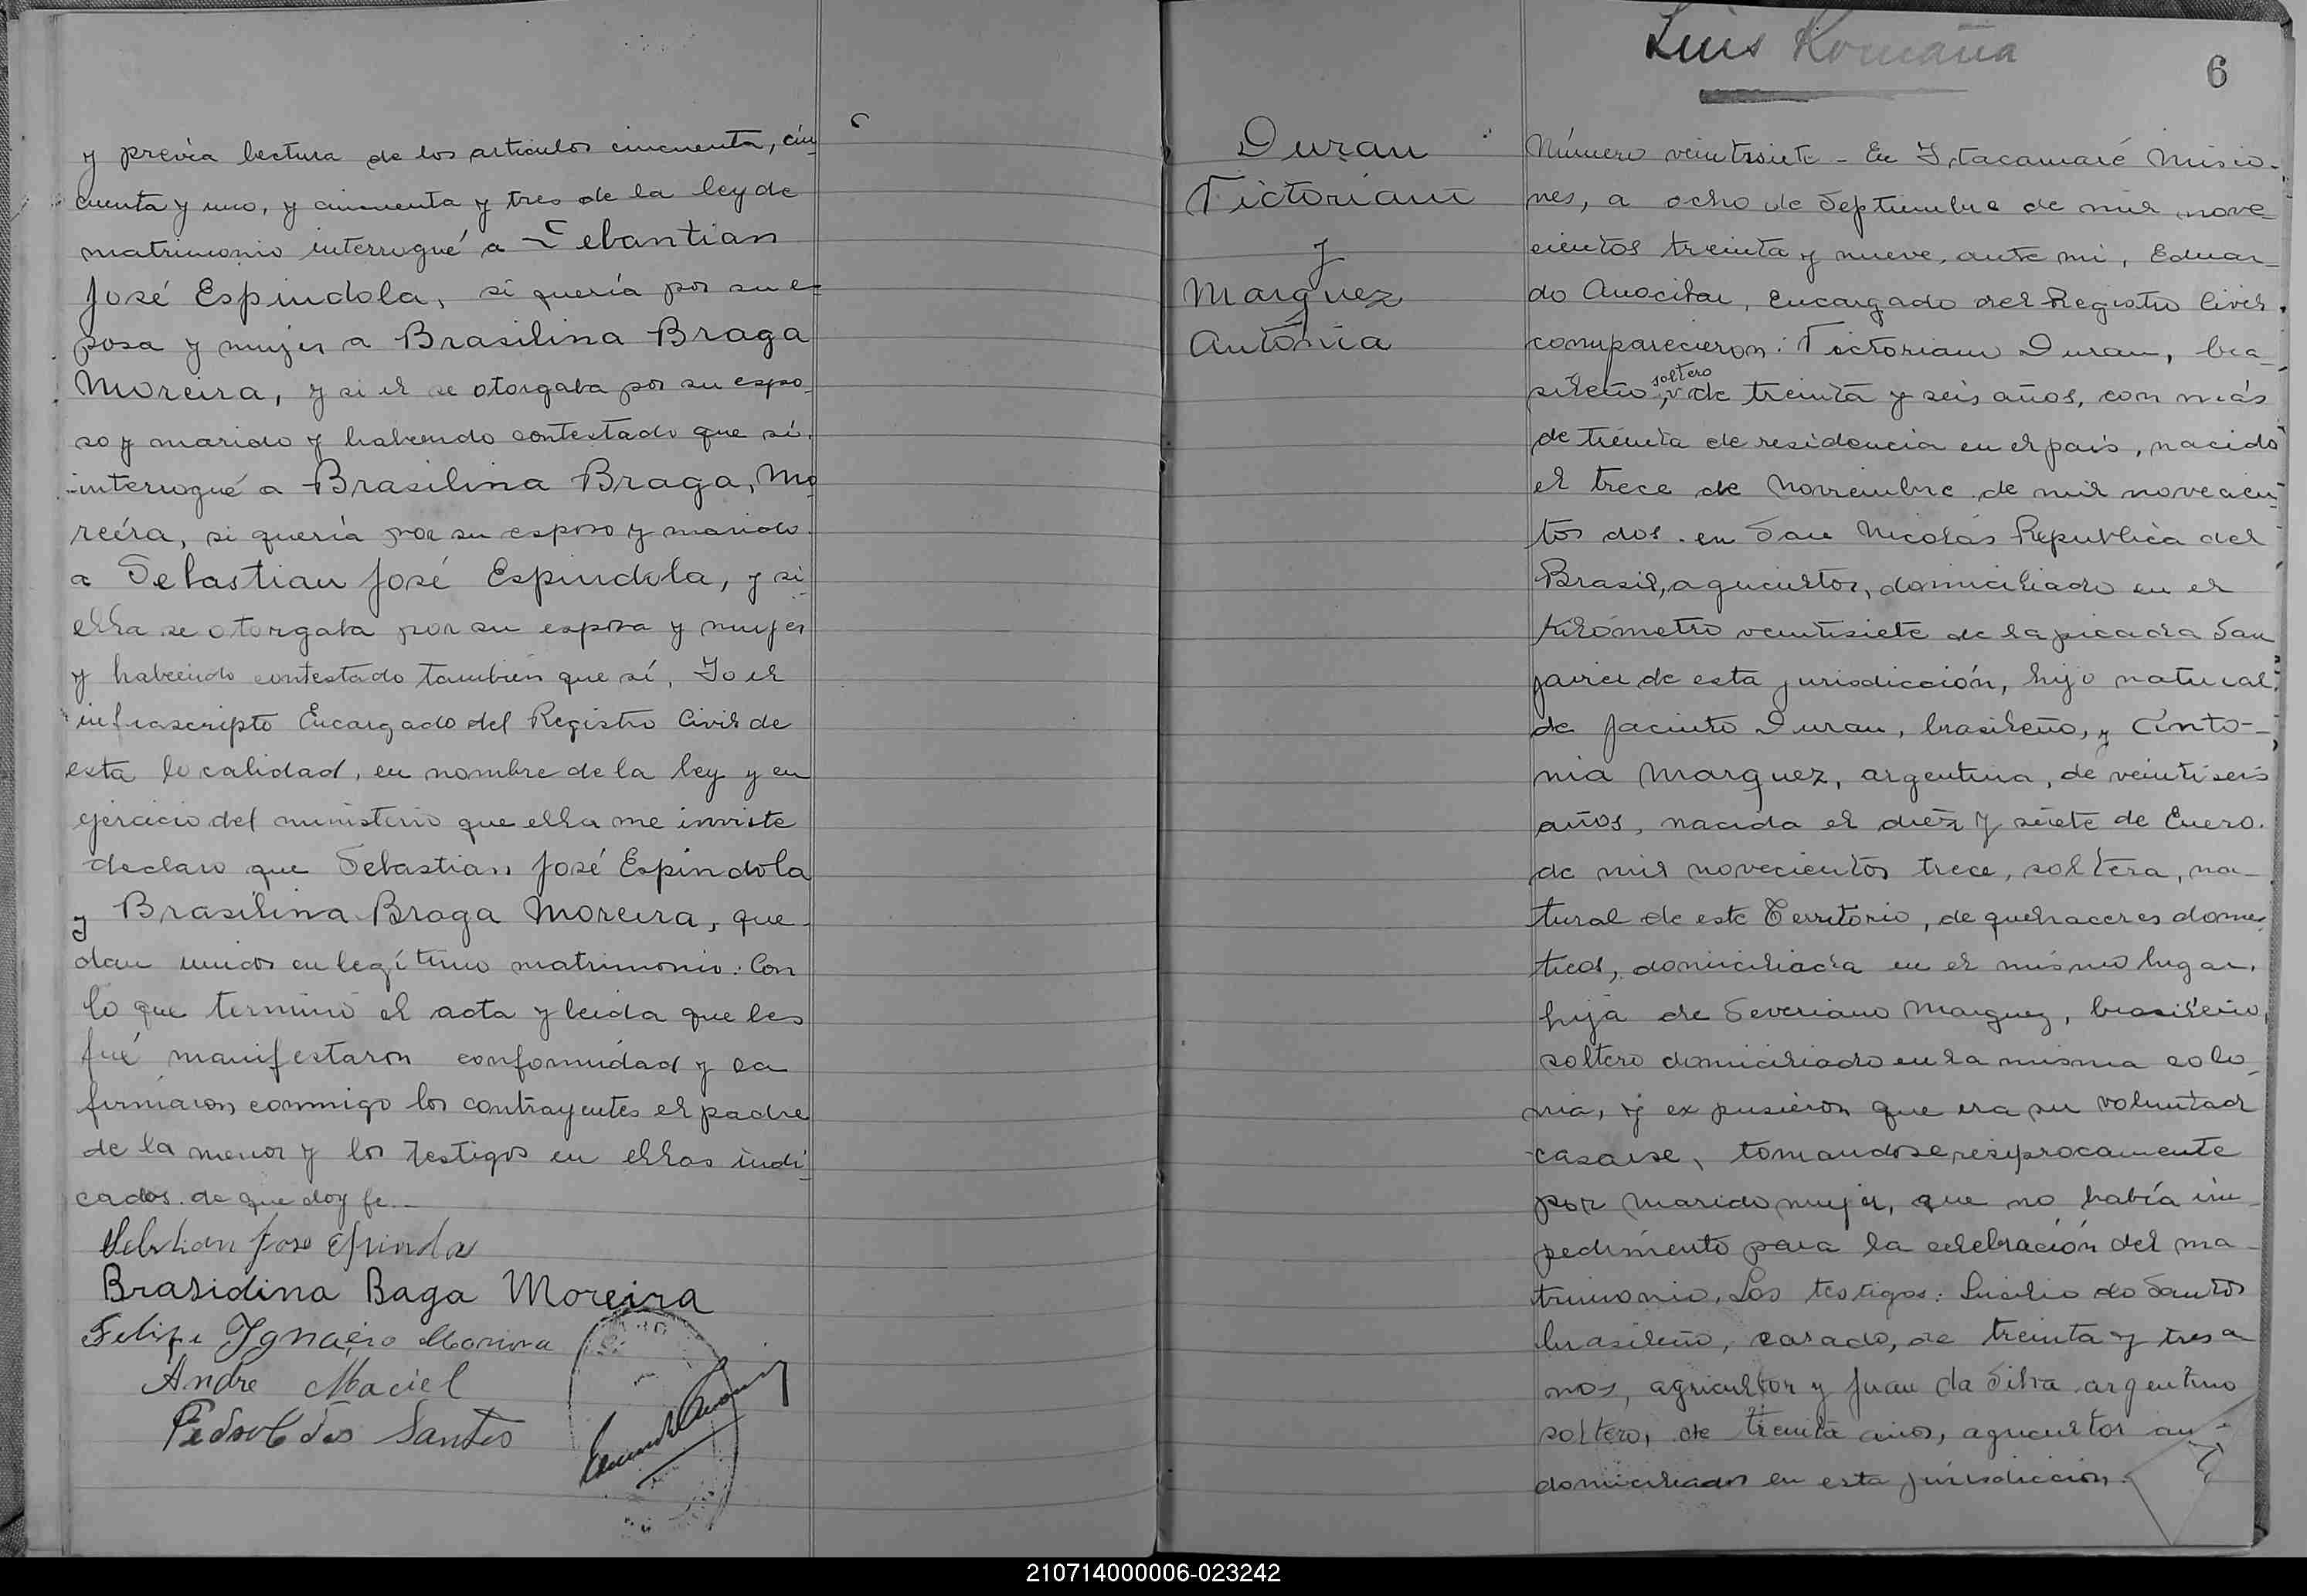 y previa lectura de los artículos cincuenta, cin
cuenta y uno, y cincuenta y tres de la ley de
matrimonio interrogué a Sebantian
José Espindola, si quería por su e-
posa y mujer a Brasilina Braga
Moreira, y si el se otorgaba por su espo-
so y marido y habiendo contestado que sí.
interrogué a Brasilina Braga, Mo
reíra, si quería por su esposo y marido
a Sebastian José Espindola, y si
ella se otorgaba por su esposa y mujer
y habiendo contestado también que sí, Yo el
infrascripto Encargado del Registro Civil de
esta localidad, en nombre de la ley y en
ejercicio del ministerio que ella me inviste
declaro que Sebastian José Espíndola
y Brasilina Braga Moreira, que-
dan unidos en legítimo matrimonio: Con
lo que terminó el acta y leida que les
fué manifestaron conformidad y la
firmaron conmigo los contrayentes el padre
de la menor y los testigos en ellas indi
cados. de que doy fe.—
Sebstian Jose Epindola
Brasidina Baga Moreira
Felipe Ygnacio Moriva
Andre Maciel
Pedro C dos Santos
Luis Romaña
6
Duran
Victoriano
y
Marquez
Antonia
Número veintisiete - En Itacaruaré Misio-
nes, a ocho de Septiembre de mil nove-
cientos treinta y nueve, ante mi, Eduar-
do Anocibar, Encargado del Registro Civil
comparecieron: Victoriano Duran, bra-
sileño, soltero de treinta y seis años, con más
de treinta de residencia en el país, nacido
el trece de Noviembre de mil novecien-
tos dos. en San Nicolás Republica del
Brasil, agricultor, domiciliado en el
kilómetro veintisiete de la picada San
Javier de esta jurisdicción, hijo natural
de Jacinto Duran, brasileño, y Anto-
nia Marquez, argentina, de veintiseis
años, nacida el diez y siete de Enero.
de mil novecientos trece, soltera, na-
tural de este Territorio, de quehaceres domes
ticos, domiciliada en el mismo lugar,
hija de Severiano Marquez, brasileño,
soltero domiciliado en la misma colo-
nia, y expusieron que era su voluntad
casarse, tomandose resiprocamente
por marido mujer, que no había im-
pedimento para la celebración del ma-
trimonio. Los testigos: Lusilio do Santos
brasileño, casado, de treinta y tres a
nos, agricultor y Juan da Silva argentino
soltero, de treinta años, agricultor am-
domiciliados en esta jurisdicción.
210714000006-023242